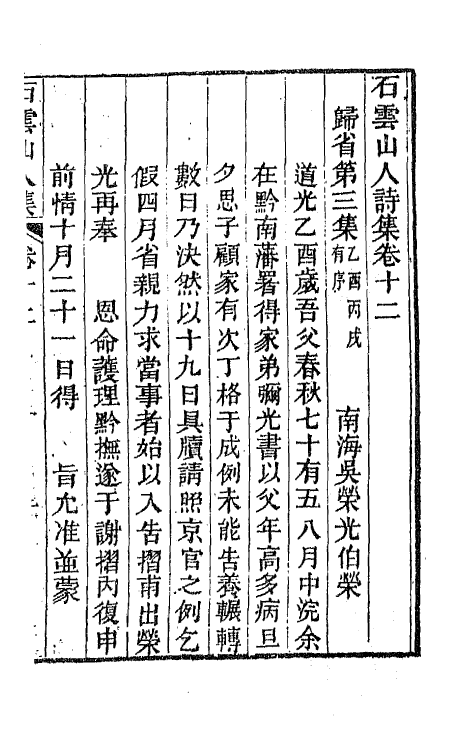 石雲山人詩集卷十二
歸省第三集乙酉丙戌有序　南海吳榮光伯榮
道光乙酉歲吾父春秋七十有五八月中浣余
在黔南藩署得家弟彌光書以父年高多病旦
夕思子顧家有次丁格于成例未能告養輾轉
數日乃決然以十九日具牘請照京官之例乞
假四月省親力求當事者始以入告摺甫出榮
光再奉　恩命護理黔撫遂于謝摺內復申
前情十月二十一日得　旨允准並蒙
石雲山人集　卷十二